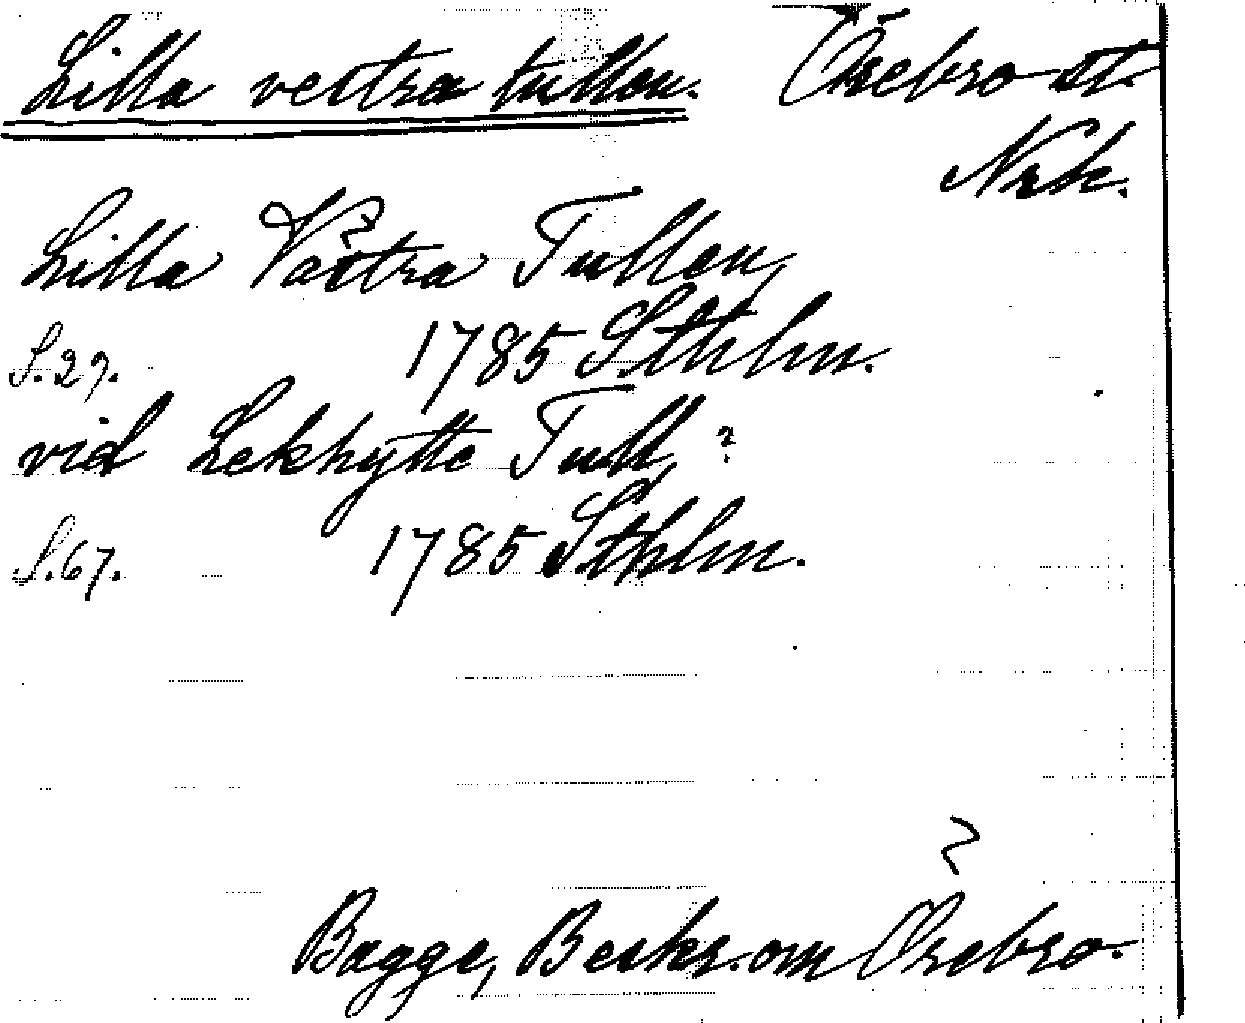 Lilla vestra tullen. Örebro st.
Nrke.
Lilla Västra Tullen,
S.29. 1785 Sthlm.
vid Lekhytte Tull, ?
S.67. 1785 Sthlm.
Bagge, Beskr. om Örebro.